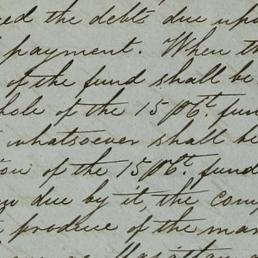 ed the debts due upo
payment. When th
of the fund shall be
hole of the 15 p Ct. fun
whatsoever shall be
ion of the 15 p Ct. fund
due by it, the com
produce of the mar